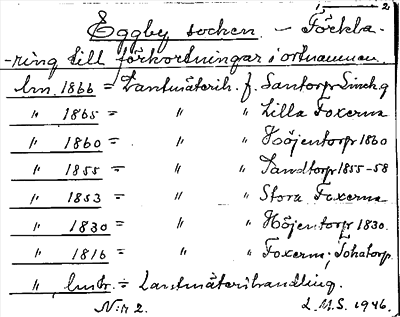 1 2.
Eggby socken. - Förkla-
-ring till förkortningar i ortnamnen.
lm. 1866 = Lantmäterih. f. Santorp
" 1865 = " " Lilla Foxerna
" 1860 = " " Höjentorp 1860
" 1855 = " " Sandtorp 1855-58
" 1853 = " " Stora Foxerna
" 1830 = " " Höjentorp 1830.
" 1816 = " " Foxerna;
" lmtr. = Lantmäterihandling.
N:r 2. L.M.S. 1946.